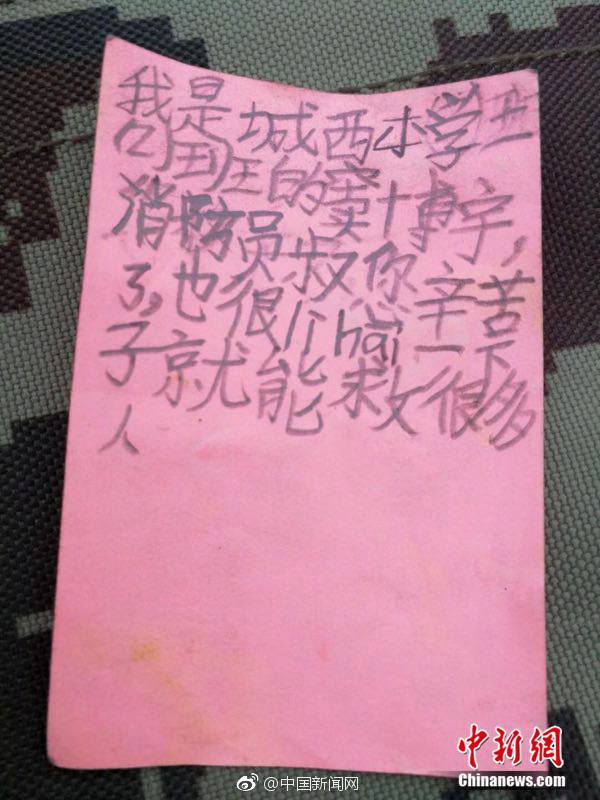 我是城西小学二
(2)班的窦博宇,
消防员叔叔你辛苦
了,也很 hai 一下
子就能救很多
人
@中国新闻网
中新網
Chinanews.com